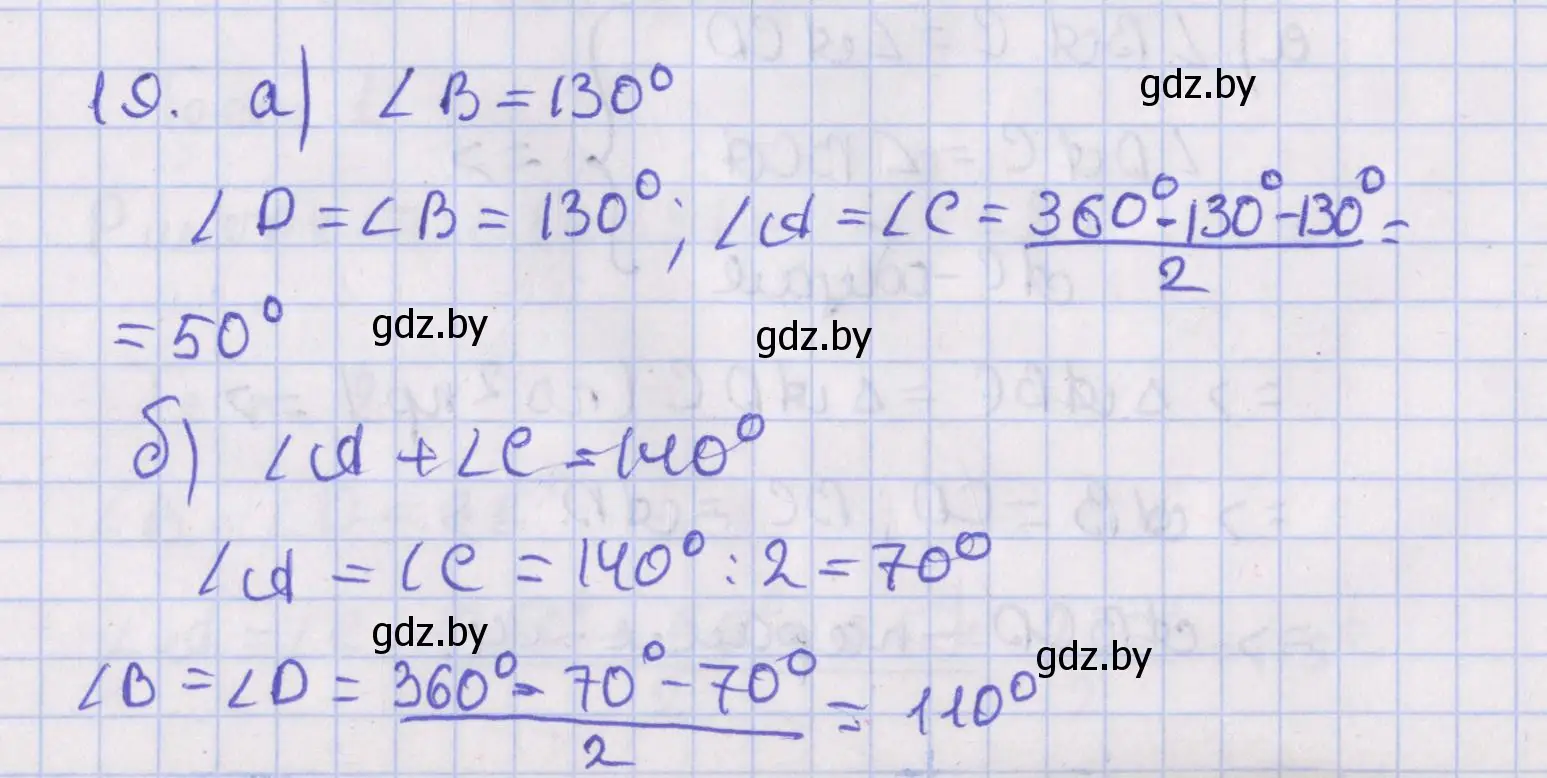 19. а) ∠B = 130°
gdz.by
∠D = ∠B = 130°; ∠A = ∠C = (360° - 130° - 130°)/2 =
= 50°
gdz.by
gdz.by
б) ∠A + ∠C = 140°
∠A = ∠C = 140° : 2 = 70°
gdz.by
gdz.by
∠B = ∠D = (360° - 70° - 70°)/2 = 110°